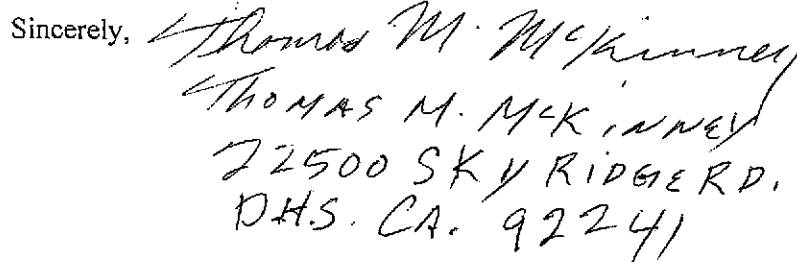 Sincerely, Thomas M. McKinney
THOMAS M. McKINNEY
22500 SKY RIDGE RD.
D.H.S. CA. 92241